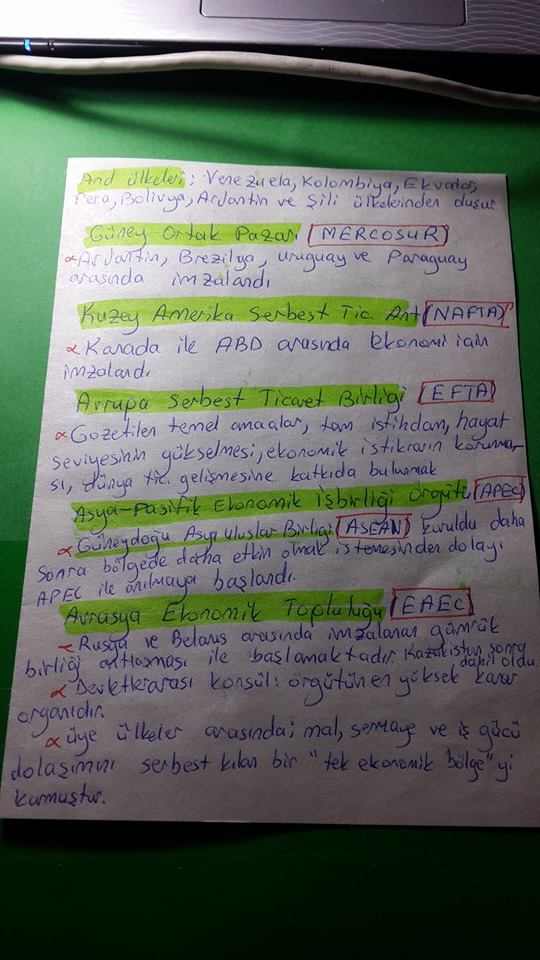 And ülkeleri; Venezuela, Kolombiya, Ekvator,
Peru, Bolivya, Arjantin ve Şili ülkelerinden oluşur
Güney Ortak Pazarı (MERCOSUR)
α Arjantin, Brezilya, Uruguay ve Paraguay
arasında imzalandı
Kuzey Amerika Serbest Tic. Ant (NAFTA)
α Kanada ile ABD arasında ekonomi için
imzalandı
Avrupa Serbest Ticaret Birliği (EFTA)
α Gözetilen temel amaçlar, tam istihdam, hayat
seviyesinin yükselmesi, ekonomik istikrarın korunma-
sı, dünya tic. gelişmesine katkıda bulunmak
Asya-Pasifik Ekonomik İşbirliği Örgütü (APEC)
α Güneydoğu Asya Uluslar Birliği (ASEAN) kuruldu daha
sonra bölgede daha etkin olmak istemesinden dolayı
APEC ile anılmaya başlandı.
Avrasya Ekonomik Topluluğu (EAEC)
α Rusya ve Belarus arasında imzalanan gümrük
birliği antlaşması ile başlamaktadır Kazakistan sonra
dahil oldu
α Devletlerarası konsül: örgütün en yüksek karar
organıdır.
α üye ülkeler arasında; mal, sermaye ve iş gücü
dolaşımını serbest kılan bir "tek ekonomik bölge"yi
kurmuştur.